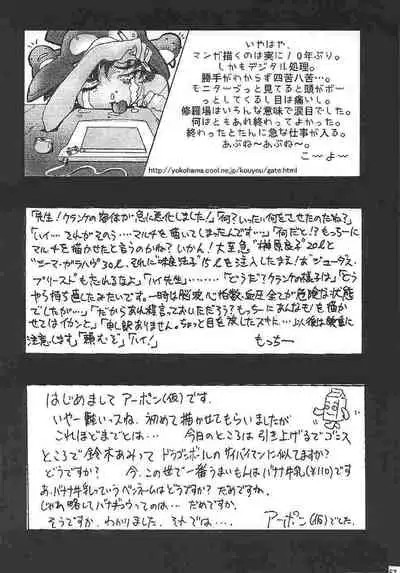 いやはや、
マンガ描くのは実に10年ぶり。
しかもデジタル処理。
勝手がわからず四苦八苦…。
モニターずっと見てると頭がボー
っとしてくるし目は痛いし。
修羅場はいろんな意味で涙目でした。
何はともあれ終わってよかった。
終わったとたんに急な仕事が入る。
あぶね～あぶね～。
こ～よ～
http://yokohama.cool.ne.jp/kouyou/gate.html
「先生!クランケの容体が急に悪化しました!」「何?いったい何をさせたのだね?」
「ハイ…それがそのう…マルチを描いてしまったんです…」「何だと!?もっちーに
マルチを描かせたと言うのかね?いかん!大至急"榊原良子"20lと
30l、それに 15lを注入したまえ!お"ジューダス・
プリースト"も忘れるなよ」「ハイ先生………」「どうだ?クランケの様子は」「どう
やら持ち直したみたいです。一時は脳波、心拍数、血圧全てが危険な状態
でしたが…」「だからあれ程言っておいただろう?もっちーにあんなモノを描か
せてはイカンと」「申し訳ありません。ちょっと目を放したスキに…以後は厳重に
注意します」「頼むぞ」「ハイ!」
もっちー
はじめまして アーポン(仮)です。
いやー軽いっスね、初めて描かせてもらいましたが
これほどまでとは… 今日のところは引き上げるでゴンス
ところで鈴木あみって ドラゴンボールのサイバイマンに似てますか?
どうですか? 今、この世で一番うまいもんはバナナ牛乳(¥110)です
あ、バナナ牛乳っていうペンネームはどうですか?だめですか。
じゃあ略してバナぎゅうってのは… だめですか。
そうですか、わかりました。ミメでは… アーポン(仮)でした。